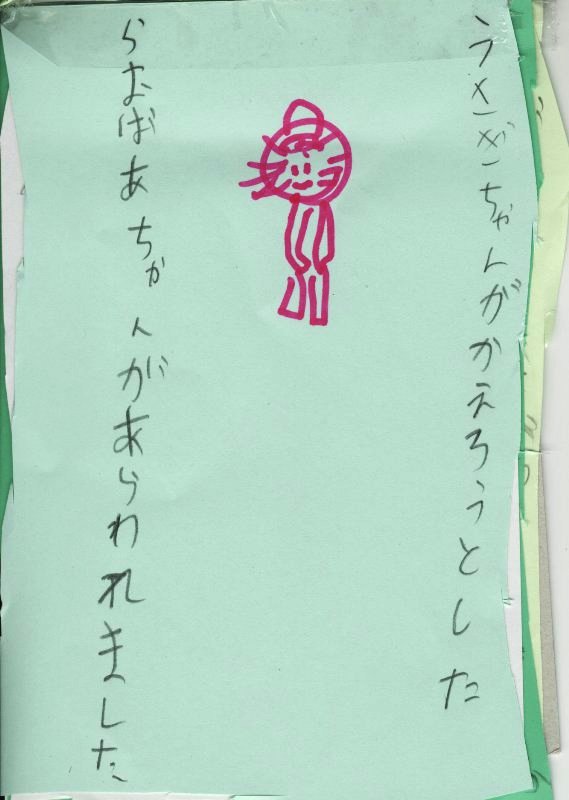 うさぎちゃんがかえろうとした
らおばあちゃんがあらわれました